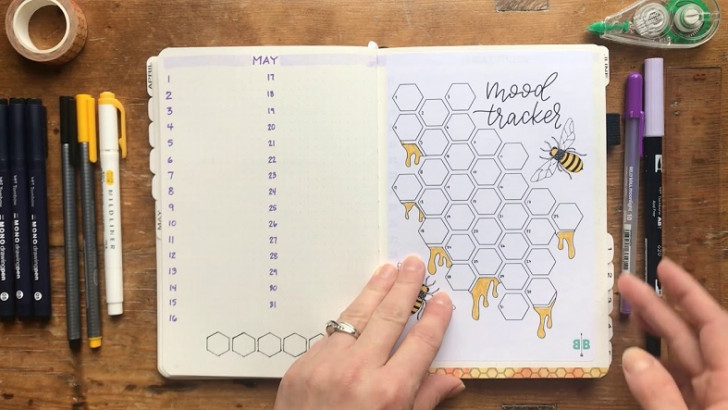 APRIL
MAY
1
2
3
4
5
6
7
8
9
10
11
12
13
14
15
16
17
18
19
20
21
22
23
24
25
26
27
28
29
30
31
MAY
mood
tracker
BB
MONO drawing pen
MONO drawing pen
MONO drawing pen
MILDLINER